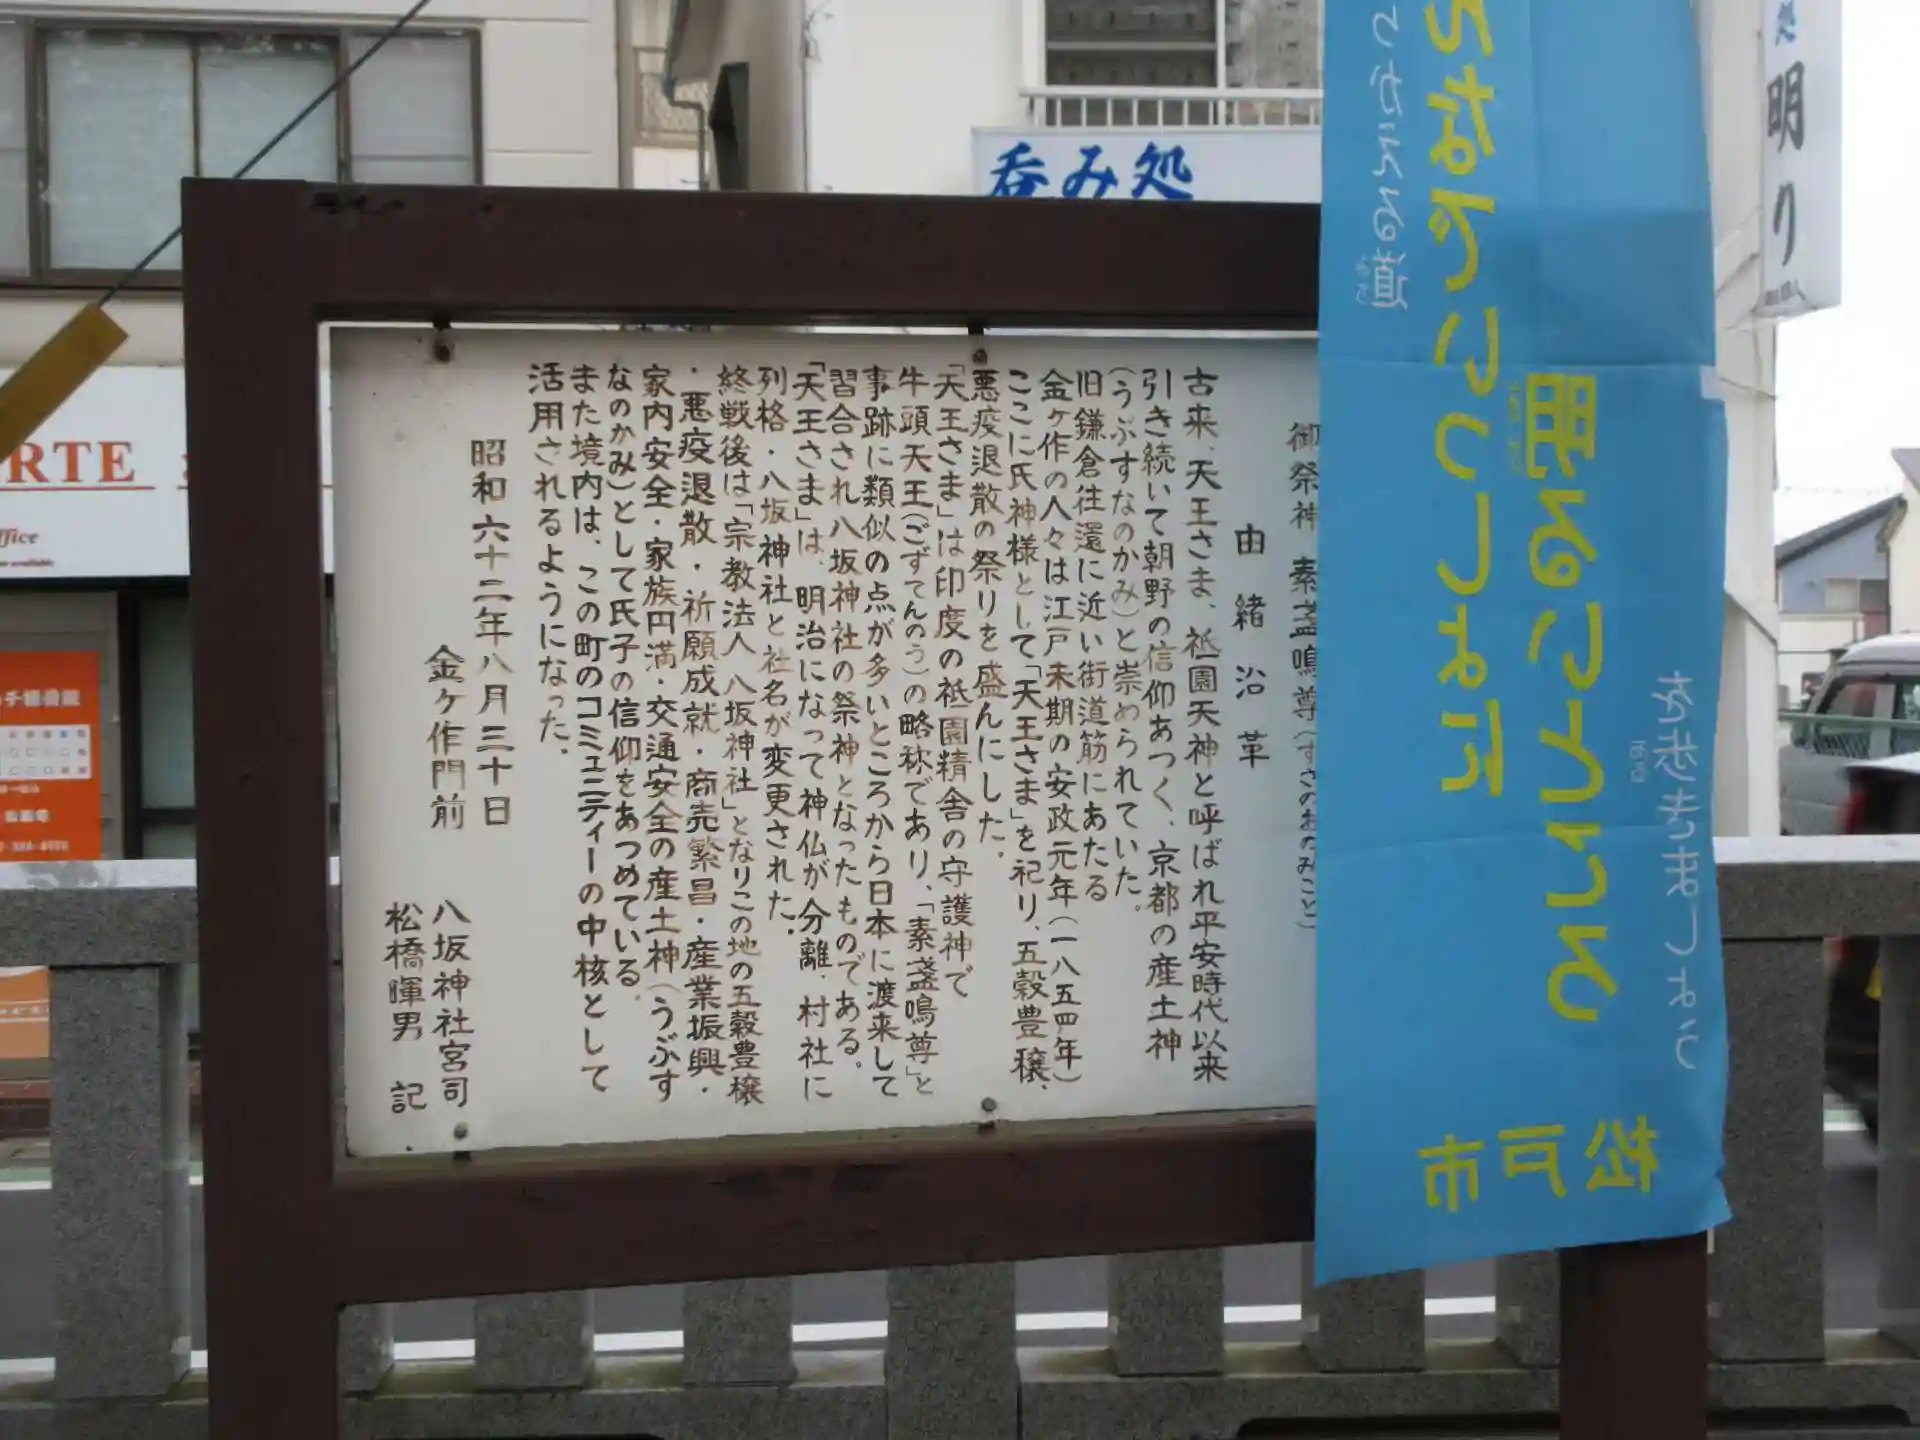 呑み処
処 明り
御祭神 素盞鳴尊(すさのおのみこと)
由緒沿革
古来、天王さま、祗園天神と呼ばれ平安時代以来
引き続いて朝野の信仰あつく、京都の産土神
(うぶすなのかみ)と崇められていた。
旧鎌倉往還に近い街道筋にあたる
金ヶ作の人々は江戸末期の安政元年(一八五四年)
ここに氏神様として「天王さま」を祀り、五穀豊穣、
悪疫退散の祭りを盛んにした.
「天王さま」は印度の祗園精舎の守護神で
牛頭天王(ごずてんのう)の略称であり、「素盞鳴尊」と
事跡に類似の点が多いところから日本に渡来して
習合され八坂神社の祭神となったものである。
「天王さま」は、明治になって神仏が分離、村社に
列格・八坂神社と社名が変更された.
終戦後は「宗教法人 八坂神社」となりこの地の五穀豊穣
・悪疫退散・祈願成就・商売繁昌・産業振興・
家内安全・家族円満・交通安全の産土神(うぶす
なのかみ)として氏子の信仰をあつめている.
また境内は、この町のコミュニティーの中核として
活用されるようになった.
昭和六十二年八月三十日
金ヶ作門前
八坂神社宮司
松橋暉男 記
明るいところ
を歩きましょう
んなでいっしょに
つかえる道
松戸市
RTE
ffice